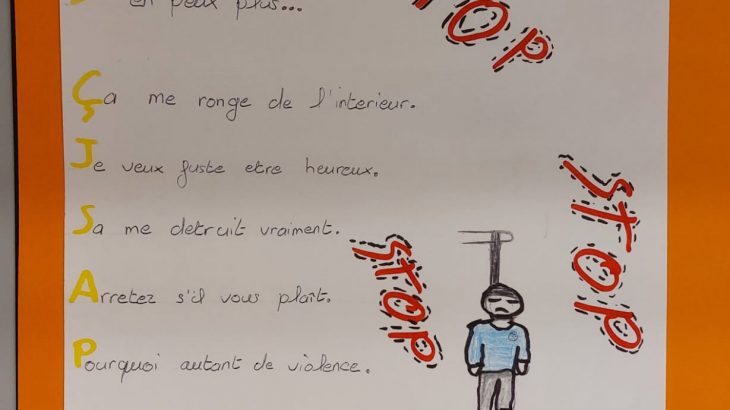 en peux plus...
STOP
Ça me ronge de l'interieur.
Je veux juste etre heureux.
STOP
Sa me detruit vraiment.
STOP
Arretez s'il vous plaît.
Pourquoi autant de violence.